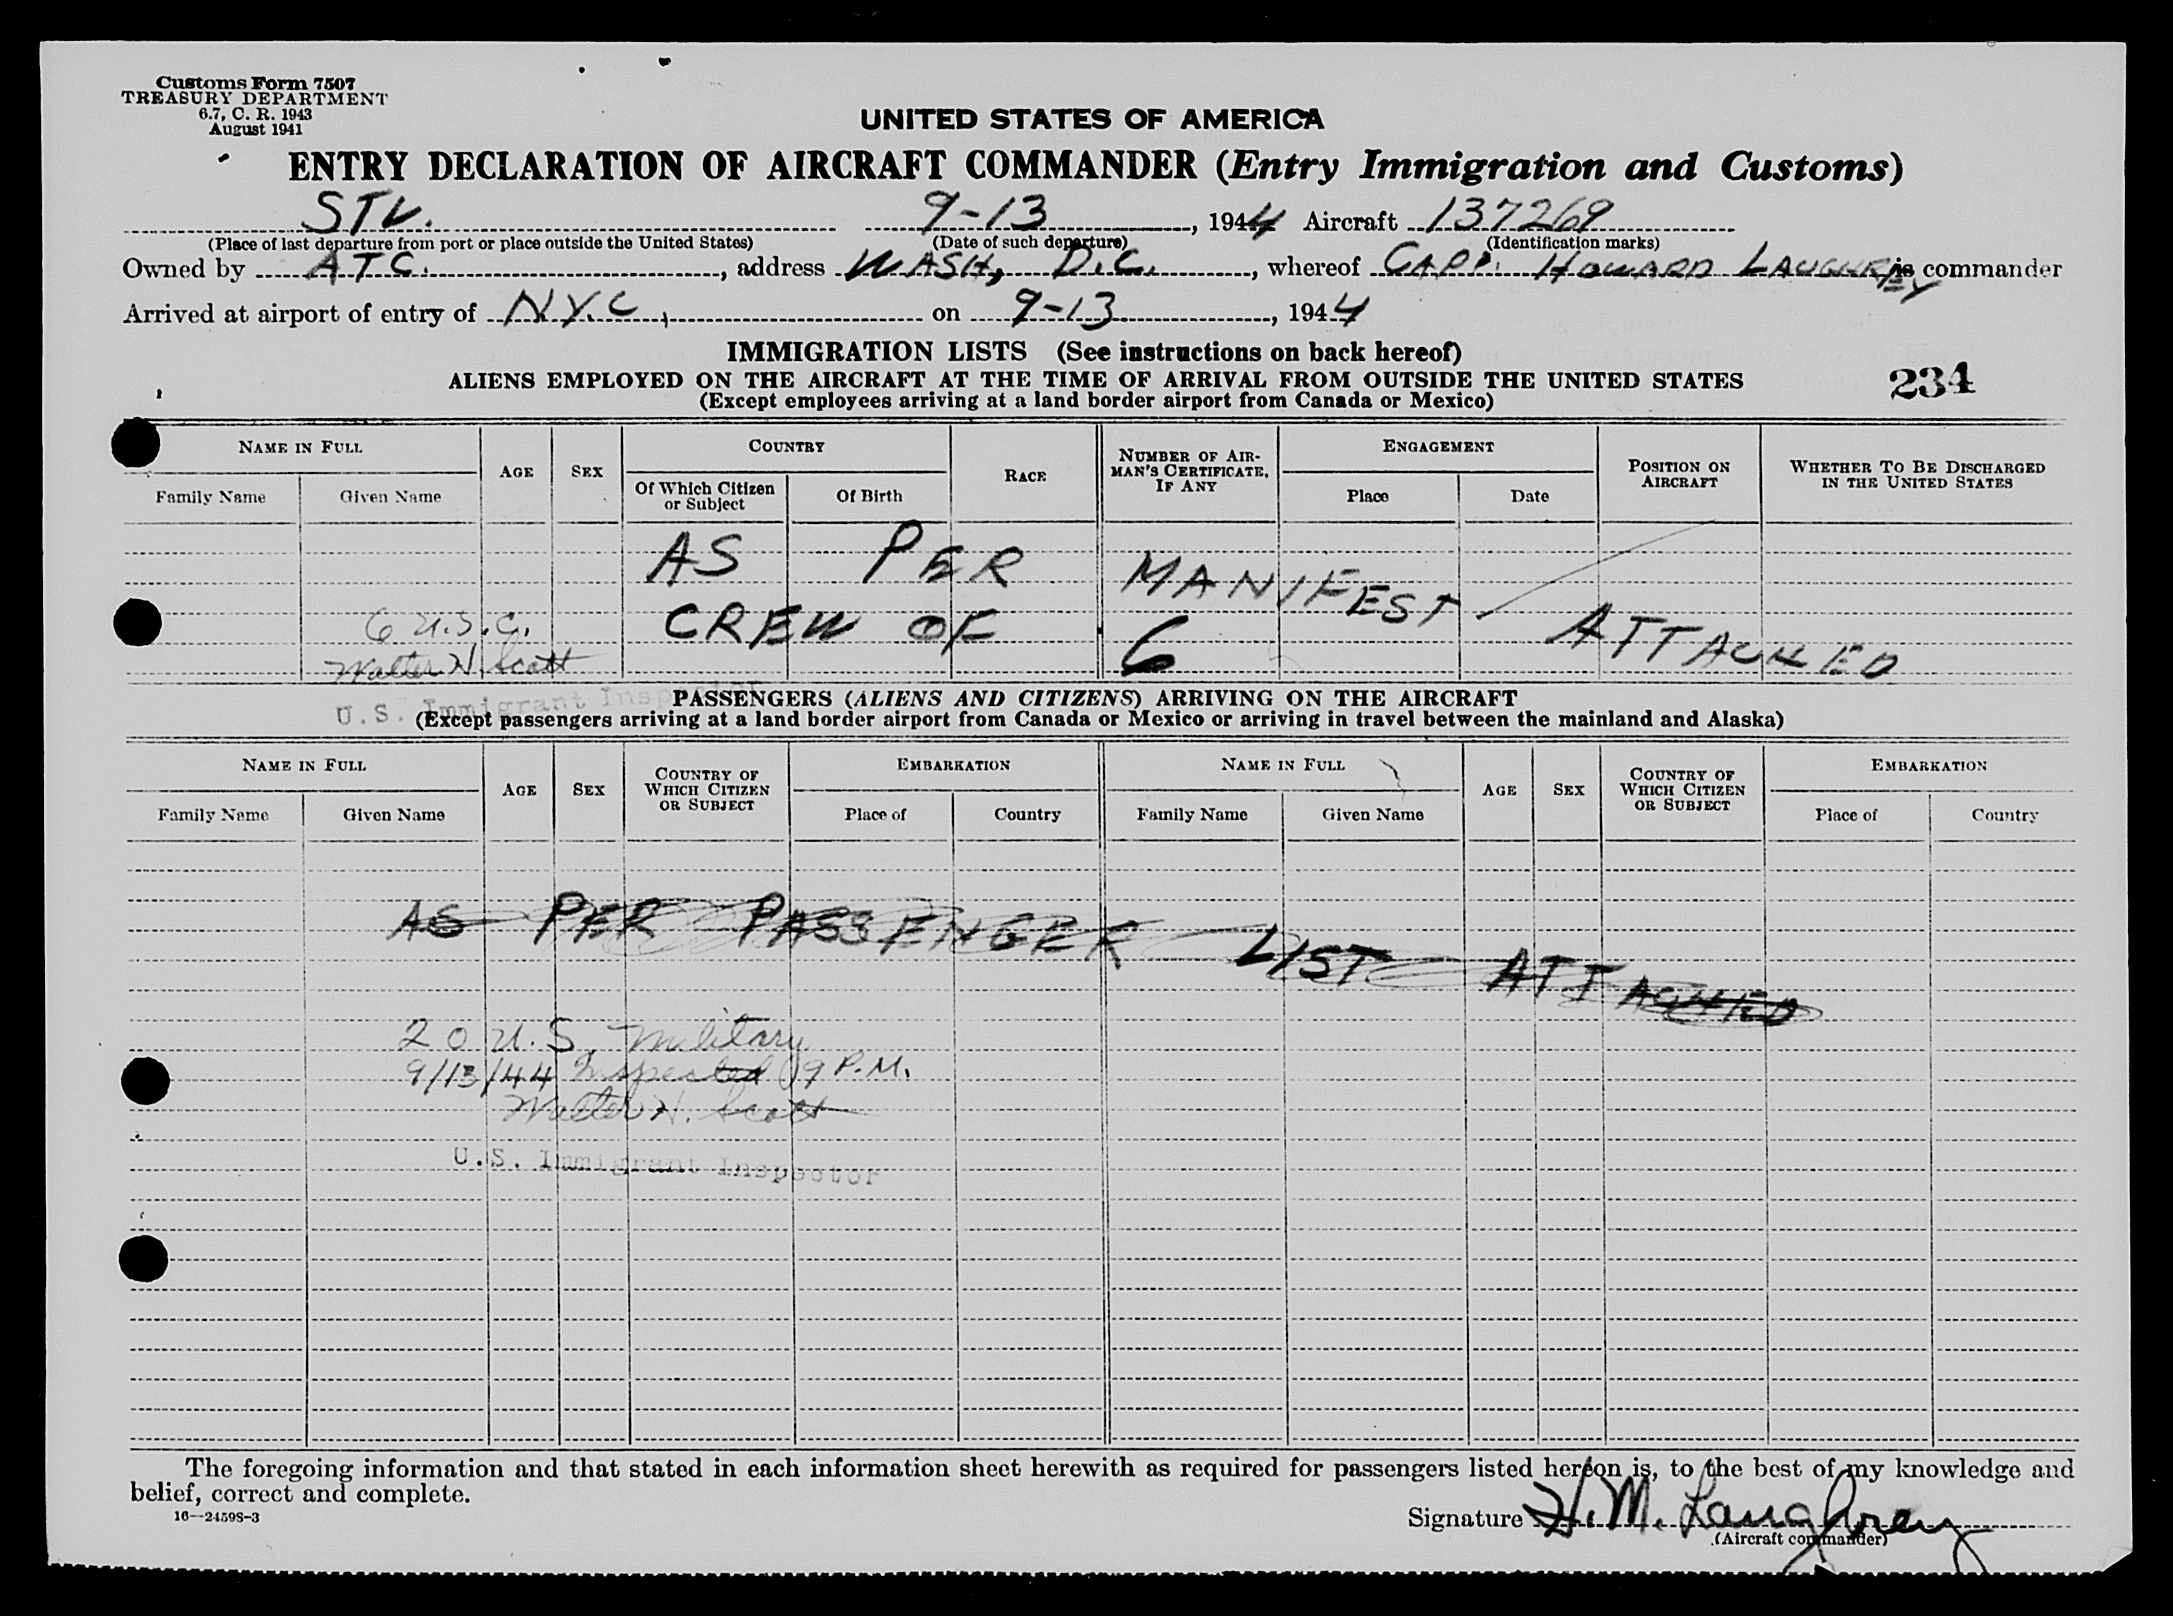 Customs Form 7507
TREASURY DEPARTMENT
6.7, C. R. 1943
August 1941
UNITED STATES OF AMERICA
ENTRY DECLARATION OF AIRCRAFT COMMANDER (Entry Immigration and Customs)
STV. 9-13, 1944 Aircraft 137269
(Place of last departure from port or place outside the United States) (Date of such departure) (Identification marks)
Owned by A.T.C., address WASH, D.C., whereof CAPT. HOWARD LAUGHREY is commander
Arrived at airport of entry of N.Y.C, on 9-13, 1944
IMMIGRATION LISTS (See instructions on back hereof)
ALIENS EMPLOYED ON THE AIRCRAFT AT THE TIME OF ARRIVAL FROM OUTSIDE THE UNITED STATES
234
(Except employees arriving at a land border airport from Canada or Mexico)
NAME IN FULL AGE SEX COUNTRY RACE NUMBER OF AIRMAN'S CERTIFICATE, IF ANY ENGAGEMENT POSITION ON AIRCRAFT WHETHER TO BE DISCHARGED IN THE UNITED STATES
Family Name Given Name Of Which Citizen or Subject Of Birth Place Date
AS PER MANIFEST ATTACHED
6 U.S.C. CREW OF 6
Walter H. Scott
U.S. Immigrant Inspector
PASSENGERS (ALIENS AND CITIZENS) ARRIVING ON THE AIRCRAFT
(Except passengers arriving at a land border airport from Canada or Mexico or arriving in travel between the mainland and Alaska)
NAME IN FULL AGE SEX COUNTRY OF WHICH CITIZEN OR SUBJECT EMBARKATION NAME IN FULL AGE SEX COUNTRY OF WHICH CITIZEN OR SUBJECT EMBARKATION
Family Name Given Name Place of Country Family Name Given Name Place of Country
AS PER PASSENGER LIST ATTACHED
20 U.S. Military
9/13/44 Inspected 9 P.M.
Walter H. Scott
U.S. Immigrant Inspector
The foregoing information and that stated in each information sheet herewith as required for passengers listed hereon is, to the best of my knowledge and
belief, correct and complete.
16—24598-3
Signature H. M. Laughrey
(Aircraft commander)